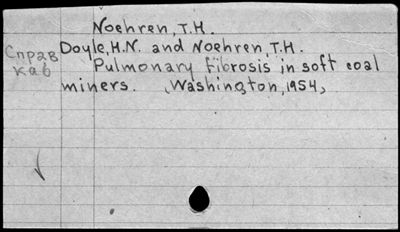 Noehren, T.H.
Doyle, H.N. and Noehren, T.H.
Pulmonary fibrosis in soft coal
miners. Washington, 1954,
Справ
каб